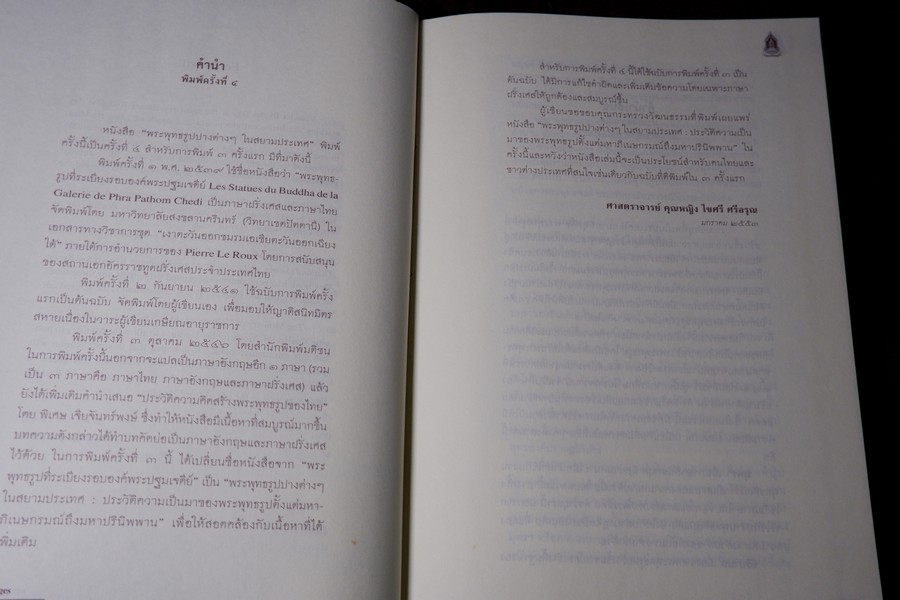 คำนำ
พิมพ์ครั้งที่ ๔
หนังสือ “พระพุทธรูปปางต่างๆ ในสยามประเทศ” พิมพ์
ครั้งนี้เป็นครั้งที่ ๔ สำหรับการพิมพ์ ๓ ครั้งแรก มีที่มาดังนี้
พิมพ์ครั้งที่ ๑ พ.ศ. ๒๕๓๙ ใช้ชื่อหนังสือว่า “พระพุทธ-
รูปที่ระเบียงรอบองค์พระปฐมเจดีย์ Les Statues du Buddha de la
Galerie de Phra Pathom Chedi เป็นภาษาฝรั่งเศสและภาษาไทย
จัดพิมพ์โดย มหาวิทยาลัยสงขลานครินทร์ (วิทยาเขตปัตตานี) ใน
เอกสารทางวิชาการชุด “เงาตะวันออกชมรมเอเชียตะวันออกเฉียง
ใต้” ภายใต้การอำนวยการของ Pierre Le Roux โดยการสนับสนุน
ของสถานเอกอัครราชทูตฝรั่งเศสประจำประเทศไทย
พิมพ์ครั้งที่ ๒ กันยายน ๒๕๔๑ ใช้ฉบับการพิมพ์ครั้ง
แรกเป็นต้นฉบับ จัดพิมพ์โดยผู้เขียนเอง เพื่อมอบให้ญาติสนิทมิตร
สหายเนื่องในวาระผู้เขียนเกษียณอายุราชการ
พิมพ์ครั้งที่ ๓ ตุลาคม ๒๕๔๖ โดยสำนักพิมพ์มติชน
ในการพิมพ์ครั้งนี้นอกจากจะแปลเป็นภาษาอังกฤษอีก ๑ ภาษา (รวม
เป็น ๓ ภาษาคือ ภาษาไทย ภาษาอังกฤษและภาษาฝรั่งเศส) แล้ว
ยังได้เพิ่มเติมคำนำเสนอ “ประวัติความคิดสร้างพระพุทธรูปของไทย”
โดย พิเศษ เจียจันทร์พงษ์ ซึ่งทำให้หนังสือมีเนื้อหาที่สมบูรณ์มากขึ้น
บทความดังกล่าวได้ทำบทคัดย่อเป็นภาษาอังกฤษและภาษาฝรั่งเศส
ไว้ด้วย ในการพิมพ์ครั้งที่ ๓ นี้ ได้เปลี่ยนชื่อหนังสือจาก “พระ
พุทธรูปที่ระเบียงรอบองค์พระปฐมเจดีย์” เป็น “พระพุทธรูปปางต่างๆ
ในสยามประเทศ : ประวัติความเป็นมาของพระพุทธรูปตั้งแต่มหา-
ภิเนษกรมณ์ถึงมหาปรินิพพาน” เพื่อให้สอดคล้องกับเนื้อหาที่ได้
เพิ่มเติม
สำหรับการพิมพ์ครั้งที่ ๔ นี้ได้ใช้ฉบับการพิมพ์ครั้งที่ ๓ เป็น
ต้นฉบับ ได้มีการแก้ไขคำผิดและเพิ่มเติมข้อความโดยเฉพาะภาษา
ฝรั่งเศสให้ถูกต้องและสมบูรณ์ขึ้น
ผู้เขียนขอขอบคุณกระทรวงวัฒนธรรมที่พิมพ์เผยแพร่
หนังสือ “พระพุทธรูปปางต่างๆ ในสยามประเทศ : ประวัติความเป็น
มาของพระพุทธรูปตั้งแต่มหาภิเนษกรมณ์ถึงมหาปรินิพพาน” ใน
ครั้งนี้และหวังว่าหนังสือเล่มนี้จะเป็นประโยชน์สำหรับคนไทยและ
ชาวต่างประเทศที่สนใจเช่นเดียวกับฉบับที่ตีพิมพ์ใน ๓ ครั้งแรก
ศาสตราจารย์ คุณหญิง ไขศรี ศรีอรุณ
มกราคม ๒๕๕๓